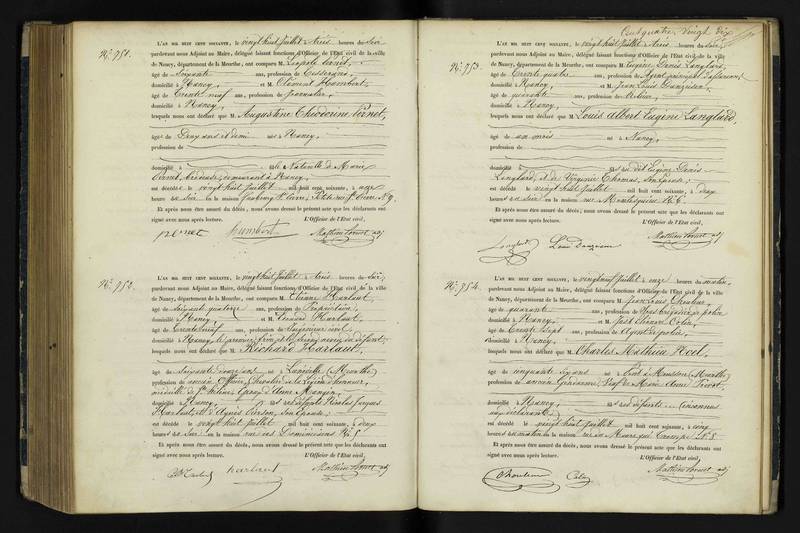 Nº 751.
L'AN MIL HUIT CENT SOIXANTE, le vingt huit Juillet à trois heures du soir
pardevant nous Adjoint au Maire, délégué faisant fonctions d'Officier de l'Etat civil de la ville
de Nancy, département de la Meurthe, ont comparu M. Léopold Pernet,
âgé de soixante ans, profession de Tisserand,
domicilié à Nancy, et M. Clément Humbert,
âgé de trente neuf ans, profession de journalier,
domicilié à Nancy,
lesquels nous ont déclaré que M. Augustine Théodorine Pernet,
âgé de Deux ans et demi né à Nancy,
profession de
domicilié à fille Naturelle de Marie
Pernet, brodeuse, demeurant à Nancy,
est décédé le vingt huit Juillet mil huit cent soixante, à onze
heures du soir en la maison faubourg St Pierre, Nº 9.
Et après nous être assuré du décès, nous avons dressé le présent acte que les déclarants ont
signé avec nous après lecture. L'Officier de l'Etat civil,
pernet humbert Mathieu adj
Nº 752.
L'AN MIL HUIT CENT SOIXANTE, le vingt huit Juillet à trois heures du soir,
pardevant nous Adjoint au Maire, délégué faisant fonctions d'Officier de l'Etat civil de la ville
de Nancy, département de la Meurthe, ont comparu M. Etienne Harlaut,
âgé de soixante quatorze ans, profession de Propriétaire,
domicilié à Nancy et M. Harlaut,
âgé de trente neuf ans, profession de Ingénieur civil
domicilié à Nancy, le premier frère et le second neveu du défunt,
lesquels nous ont déclaré que M. Richard Harlaut,
âgé de soixante douze ans né à Lunéville (Meurthe)
profession de ancien Officier, Chevalier de la Légion d'honneur,
médaillé de Ste Hélène, époux d'Anne Mangin,
domicilié à Nancy, fils des défunts Nicolas
Harlaut, et d'Agnès son épouse;
est décédé le vingt huit Juillet mil huit cent soixante, à deux
heures du soir en la maison rue des Dominicains Nº 5
Et après nous être assuré du décès, nous avons dressé le présent acte que les déclarants ont
signé avec nous après lecture. L'Officier de l'Etat civil,
Harlaut harlaut Mathieu adj
Cent quatre Vingt Dix
Nº 753.
L'AN MIL HUIT CENT SOIXANTE, le vingt huit Juillet à trois heures du soir,
pardevant nous Adjoint au Maire, délégué faisant fonctions d'Officier de l'Etat civil de la ville
de Nancy, département de la Meurthe, ont comparu M. Eugène Denis Langlard,
âgé de trente quatre ans, profession de Agent principal d'assurances
domicilié à Nancy et M. Jean Louis
âgé de quarante ans, profession de
domicilié à Nancy,
lesquels nous ont déclaré que M. Louis Albert Eugène Langlard,
âgé de un mois né à Nancy,
profession de
domicilié à fils du dit Eugène Denis
Langlard, et de Virginie Thomas, son épouse;
est décédé le vingt huit Juillet mil huit cent soixante, à deux
heures du soir en la maison rue Montesquieu Nº 6.
Et après nous être assuré du décès, nous avons dressé le présent acte que les déclarants ont
signé avec nous après lecture. L'Officier de l'Etat civil,
Langlard Louis Mathieu adj
Nº 754.
L'AN MIL HUIT CENT SOIXANTE, le vingt neuf Juillet à onze heures du matin,
pardevant nous Adjoint au Maire, délégué faisant fonctions d'Officier de l'Etat civil de la ville
de Nancy, département de la Meurthe, ont comparu M. Jean Louis
âgé de quarante ans, profession de Brigadier de police
domicilié à Nancy, et M. Colin,
âgé de trente sept ans, profession de Agent de police,
domicilié à Nancy,
lesquels nous ont déclaré que M. Charles Mathieu Noel,
âgé de cinquante six ans né à Pont à Mousson (Meurthe)
profession de ancien Gendarme, Veuf de Marie Anne
domicilié à Nancy, fils des défunts inconnus
aux déclarants;
est décédé le vingt huit Juillet mil huit cent soixante, à cinq
heures du matin en la maison rue Nº 8
Et après nous être assuré du décès, nous avons dressé le présent acte que les déclarants ont
signé avec nous après lecture. L'Officier de l'Etat civil,
Colin Mathieu adj